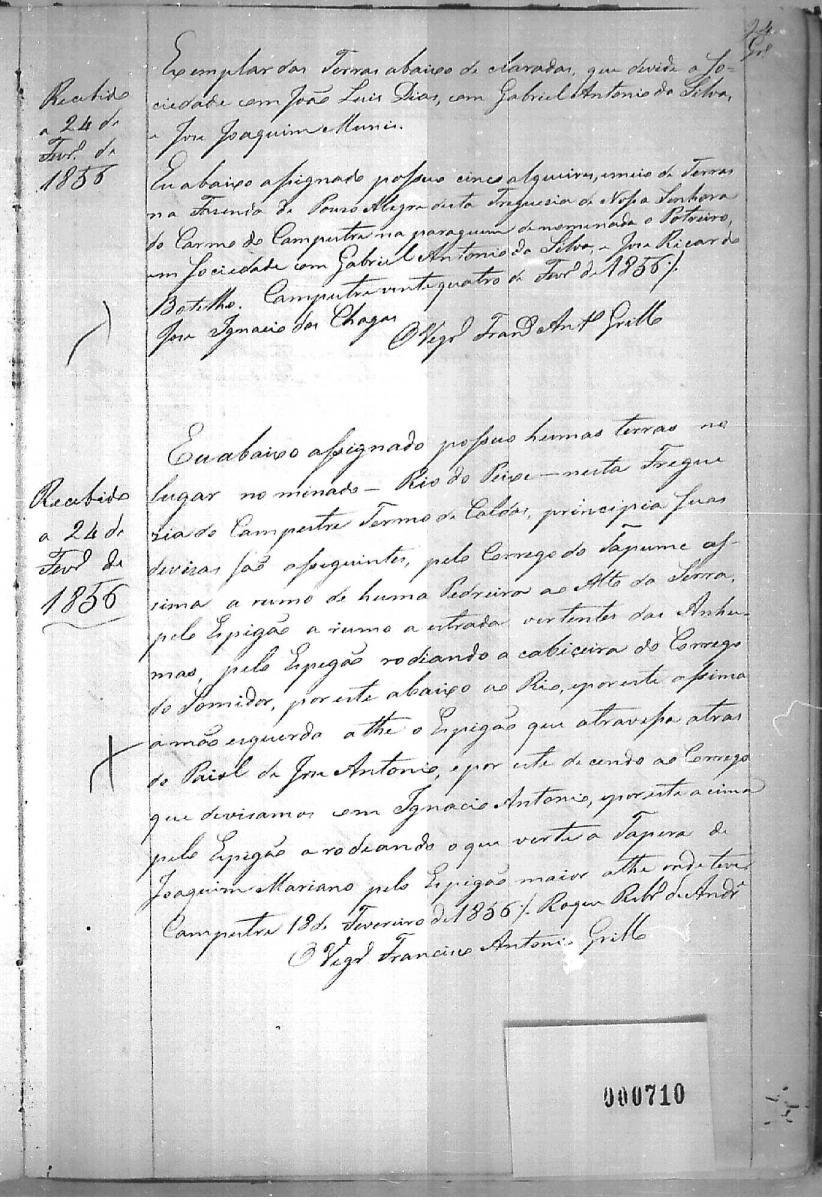 24
Exemplar das Terras abaixo declaradas, que devide a So-
ciedade com João Luis Dias, com Gabriel Antonio da Silva,
e Jose Joaquim Munis.
Recebido
a 24 de
Fevr.º de
1856
Eu abaixo assignado possuo cinco alqueires, emeio de Terras
na Fasenda de Pouso Alegre desta Freguesia de Nossa Senhora
do Carmo do Campestre na paragem denominada o Potreiro,
em Sociedade com Gabriel Antonio da Silva, e Jose Ricardo
Botelho. Campestre vinte quatro de Fevrº de 1856/.
Jose Ignacio das Chagas
O Vegrº Francº Antº Grillo
Recebido
a 24 de
Fevrº de
1856
Eu abaixo assignado possuo humas terras no
lugar nominado — Rio do Peixe — nesta Fregue
zia do Campestre Termo de Caldas, principia suas
devizas são asseguintes, pelo Corrego do Tapume as-
sima a rumo de huma Pedreira ao Alto da Serra,
pelo Espigão a rumo a estrada vertentes das Anhu-
mas, pelo Espegão rodiando a cabiceira do Corrego
do Somidor, por este abaixo ao Rio, epor este assima
a mão esquerda athe o Espigão que atravessa atras
do Paiol de Jose Antonio, e por este decendo ao Corrego
que devisamos com Ignacio Antonio, epor este acima
pelo Espigão arodeando o que verte a Tapera de
Joaquim Mariano pelo Espigão maior athe onde teve
Campestre 18 de Fevereiro de 1856/. Roque Ribrº de Andrº
O Vegrº Francisco Antonio Grillo
000710